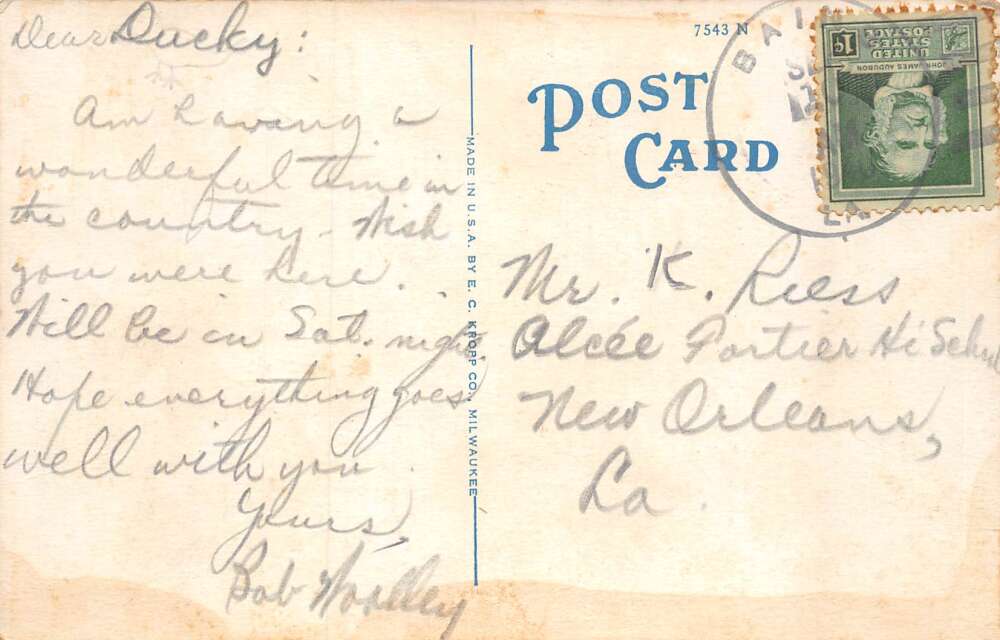 Dear Ducky:
Am having a
wonderful time in
the country - Wish
you were here.
Will be in Sat. night.
Hope everything goes
well with you
Yours,
Bob Woolley
MADE IN U.S.A. BY E. C. KROPP CO., MILWAUKEE
7543 N
POST
CARD
BAI
LA
1¢
UNITED
STATES
POSTAGE
JOHN JAMES AUDUBON
Mr. K. Riess
Alcée Fortier Hi School
New Orleans,
La.